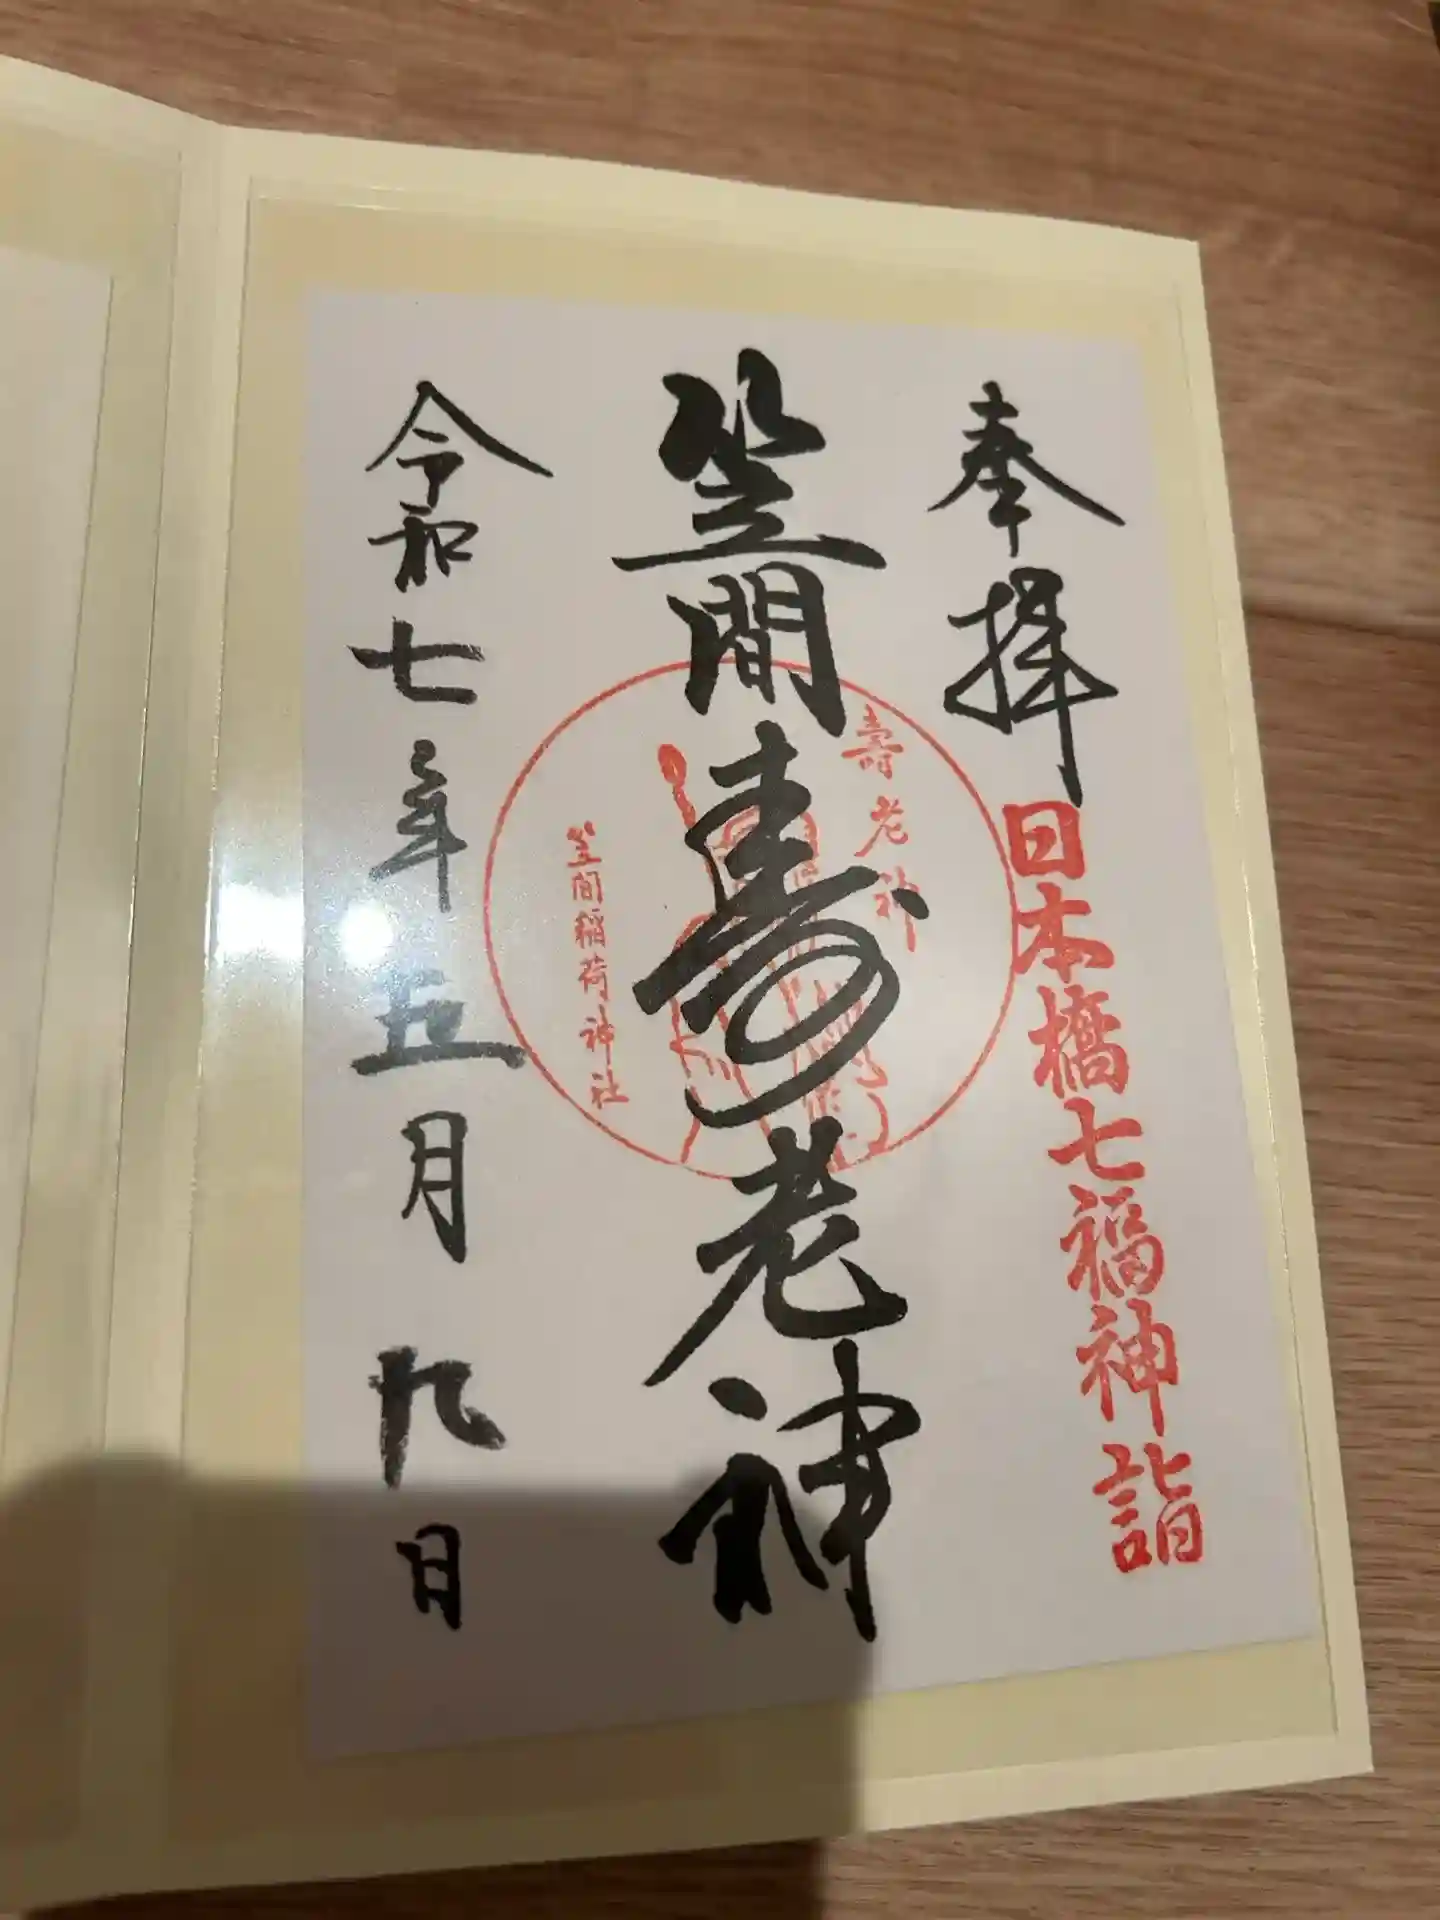 奉拝
日本橋七福神詣
笠間寿老神
壽老神
笠间稲荷神社
令和七年五月九日